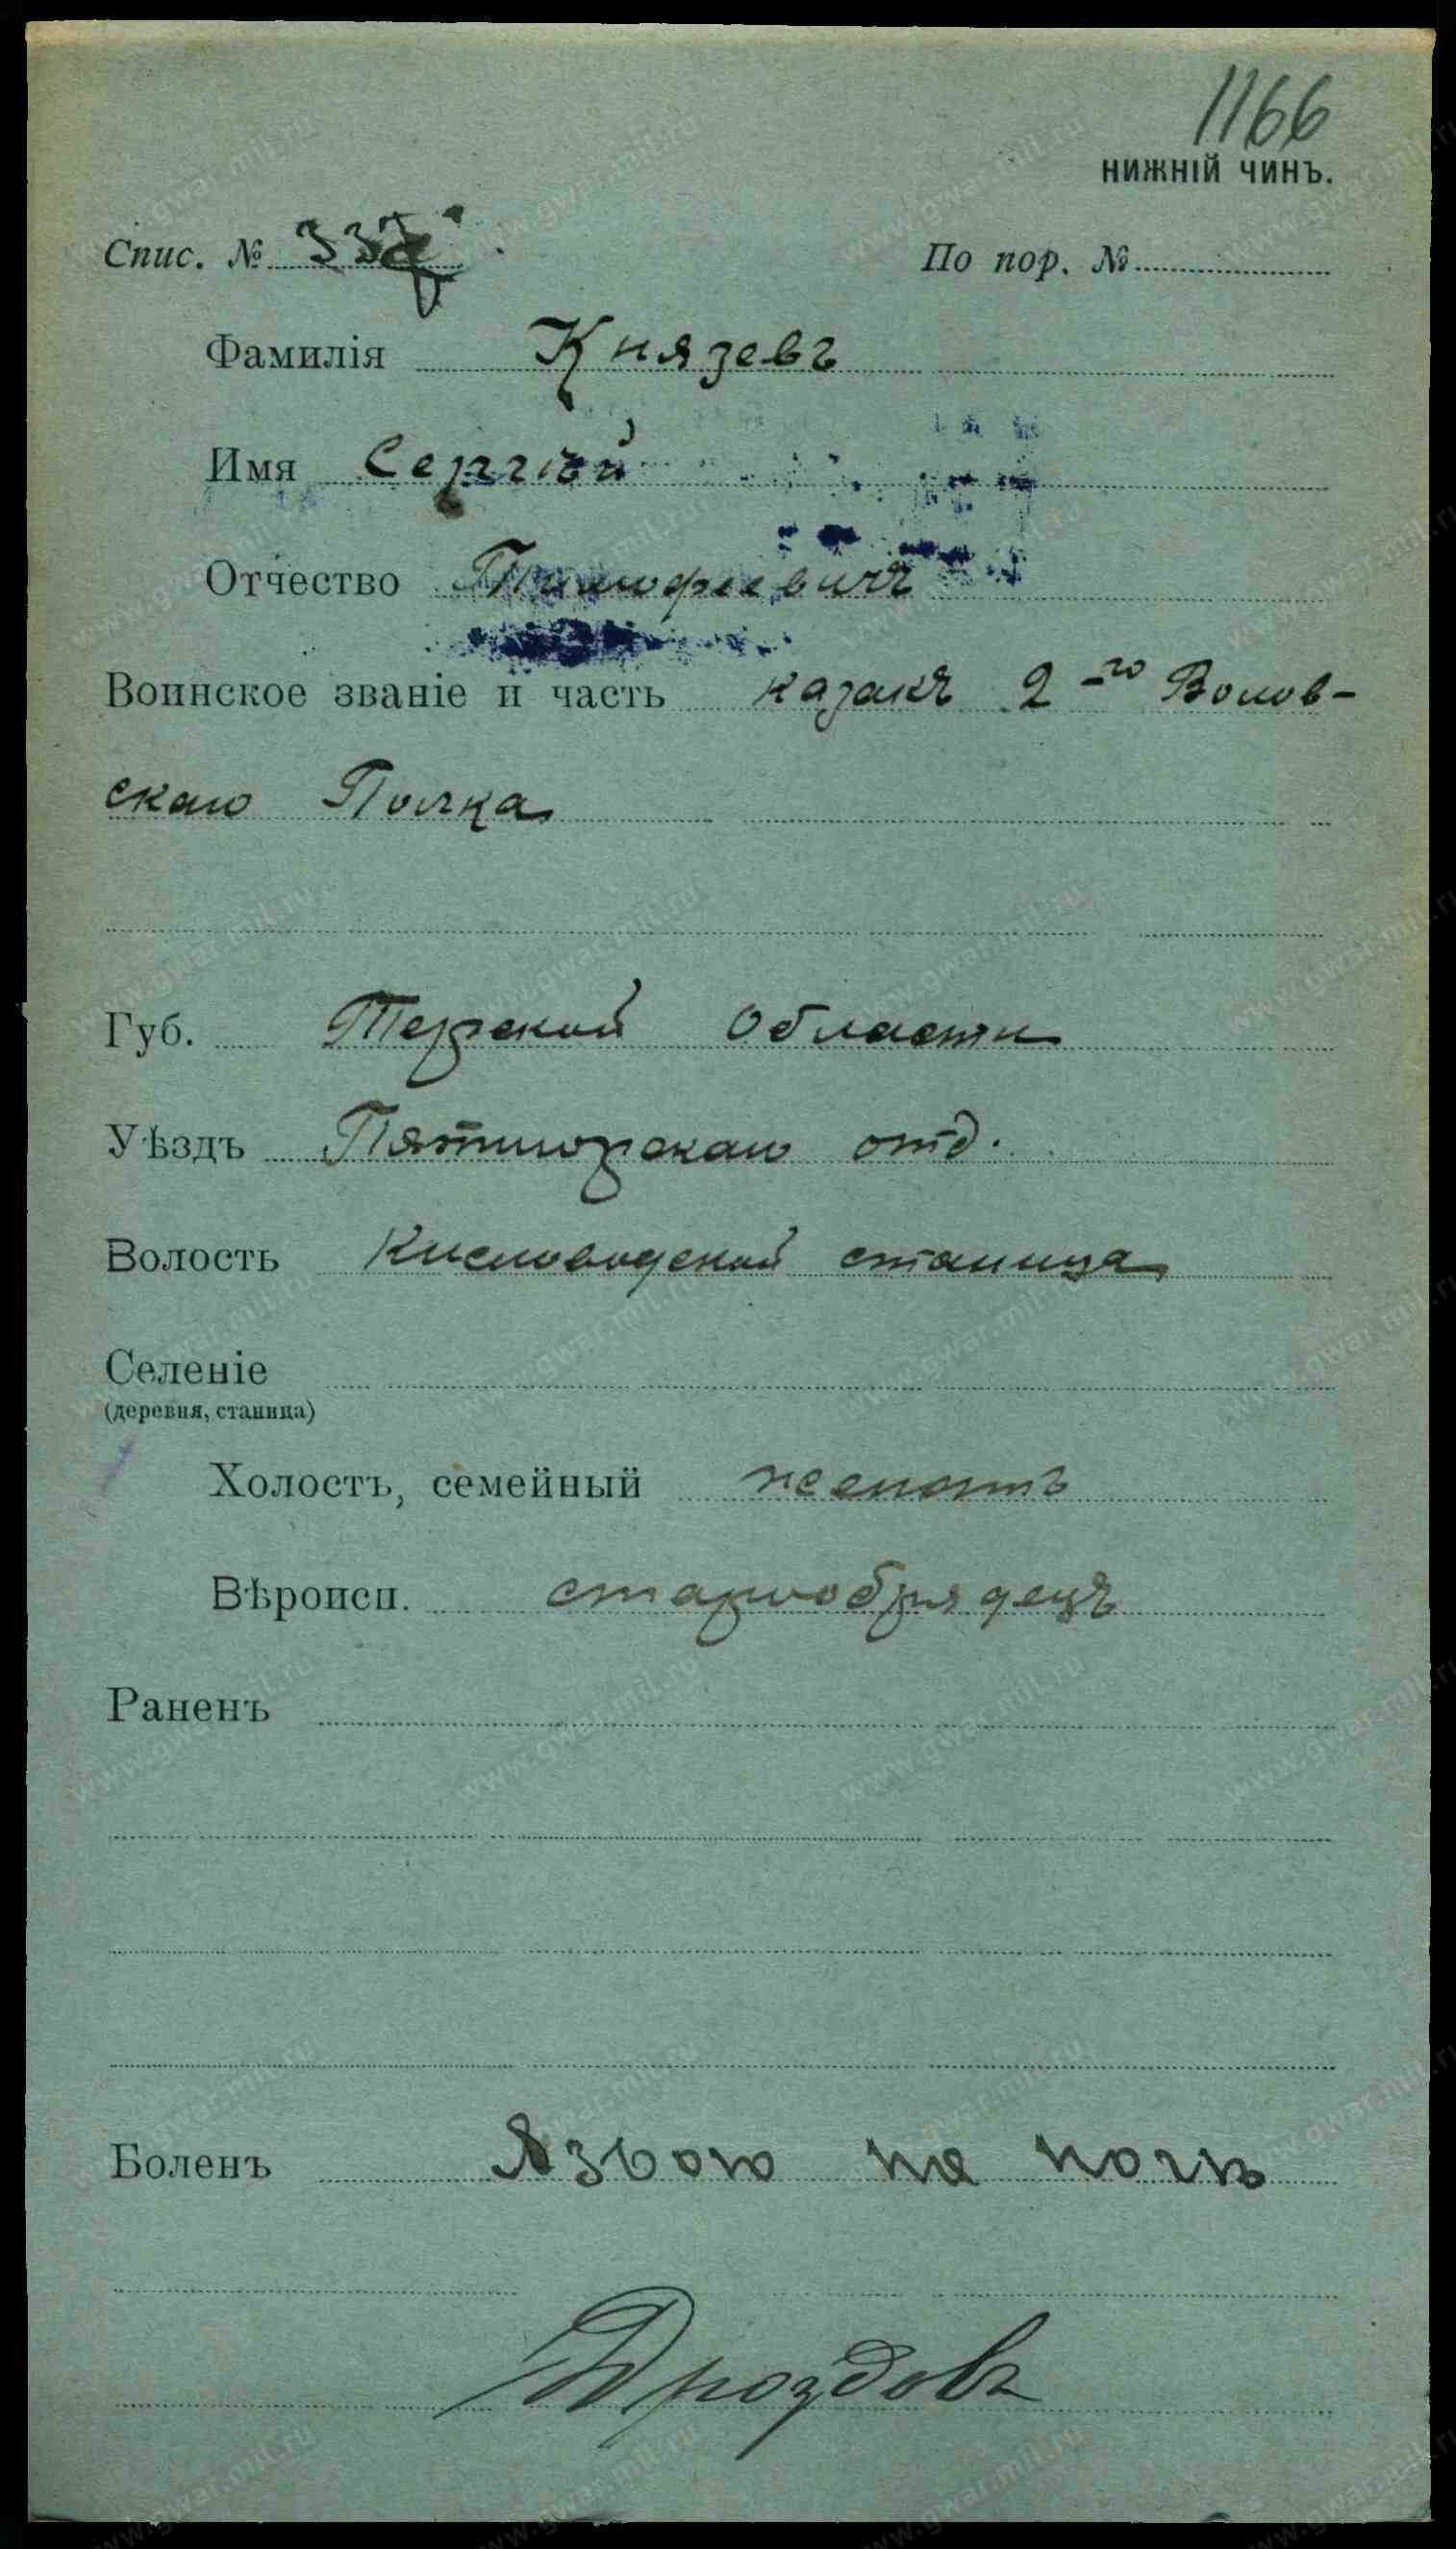 1166
НИЖНІЙ ЧИНЪ.
Спис. № 337 По пор. №
Фамилія Князевъ
Имя Сергѣй
Отчество Тимофеевичъ
Воинское званіе и часть казакъ 2-го Волов-
скаго Полка
Губ. Терской Области
Уѣздъ Пятигорскаго отд.
Волость Кисловодской станица
Селеніе
(деревня, станица)
Холостъ, семейный женатъ
Вѣроисп. старообрядецъ
Раненъ
Боленъ Язвою на ногѣ
Дроздовъ
www.gwar.mil.ru